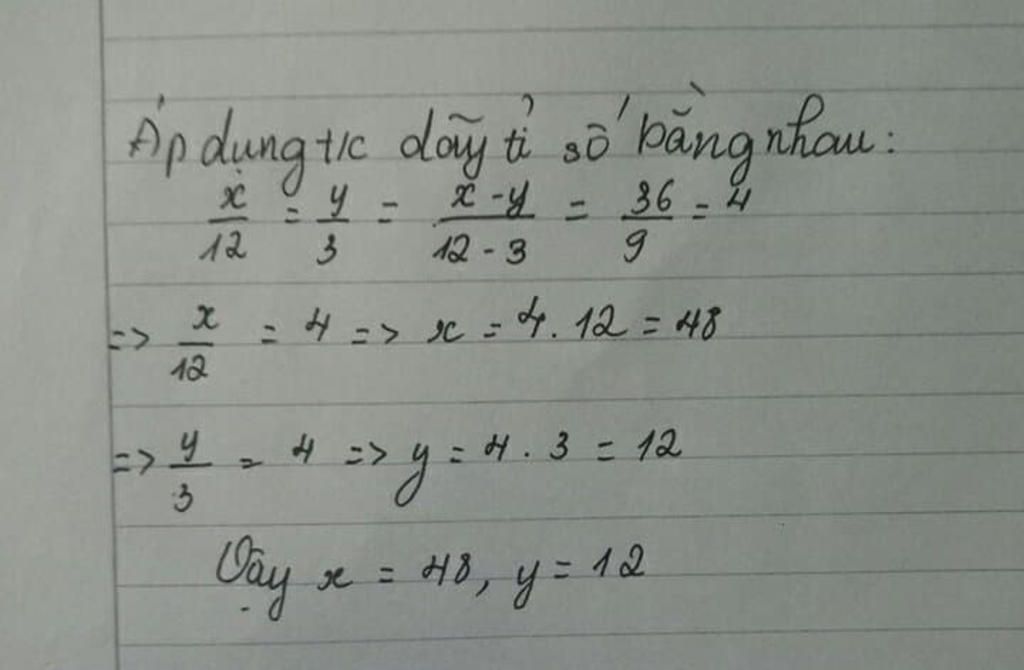 Áp dụng t/c dãy tỉ số bằng nhau:
x/12 = y/3 = x-y/12-3 = 36/9 = 4
=> x/12 = 4 => x = 4.12 = 48
=> y/3 = 4 => y = 4.3 = 12
Vậy x = 48, y = 12